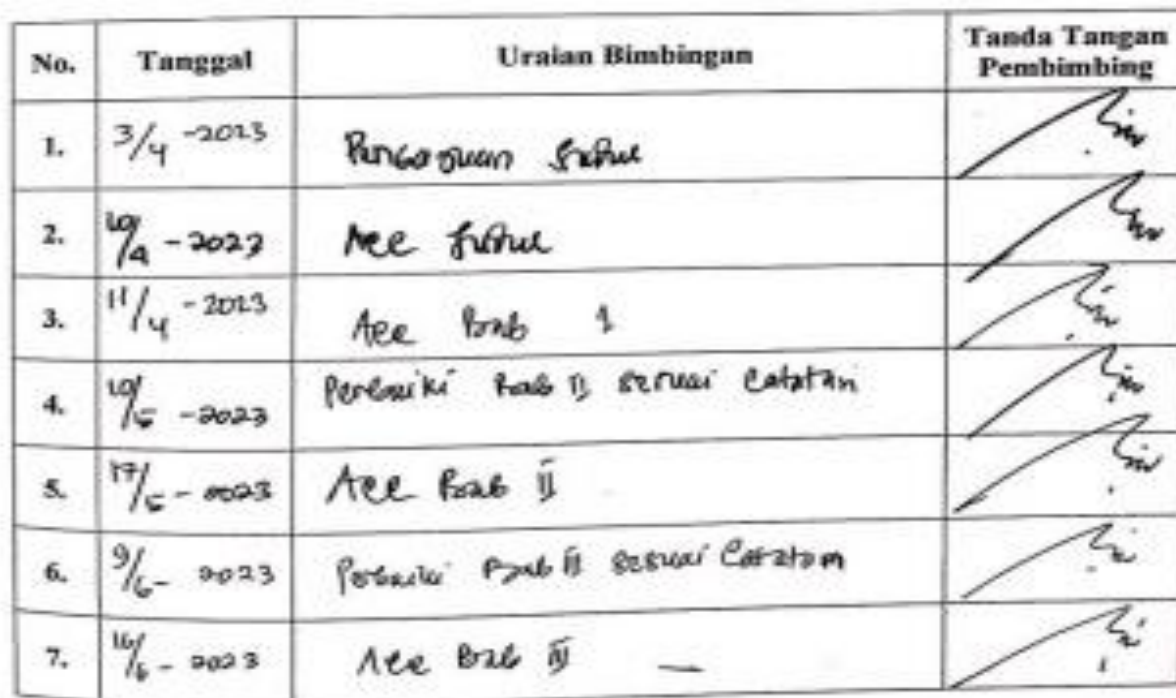 No. Tanggal Uraian Bimbingan Tanda Tangan Pembimbing
1. 3/4 -2023 Pengajuan Judul
2. 10/4 - 2023 Acc Judul
3. 11/4 - 2023 Acc Bab I
4. 10/5 - 2023 Perbaiki Bab II sesuai Catatan
5. 17/5 - 2023 Acc Bab II
6. 9/6 - 2023 Perbaiki Bab sesuai Catatan
7. 16/6 - 2023 Acc Bab III